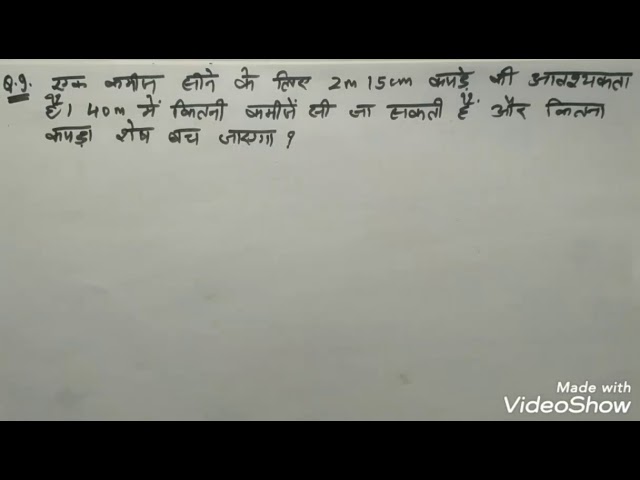 Q.9. एक कमीज सीने के लिए 2m 15cm कपड़े की आवश्यकता
है। 40m में कितनी कमीजें सी जा सकती है और कितना
कपड़ा शेष बच जाएगा ?
Made with
VideoShow